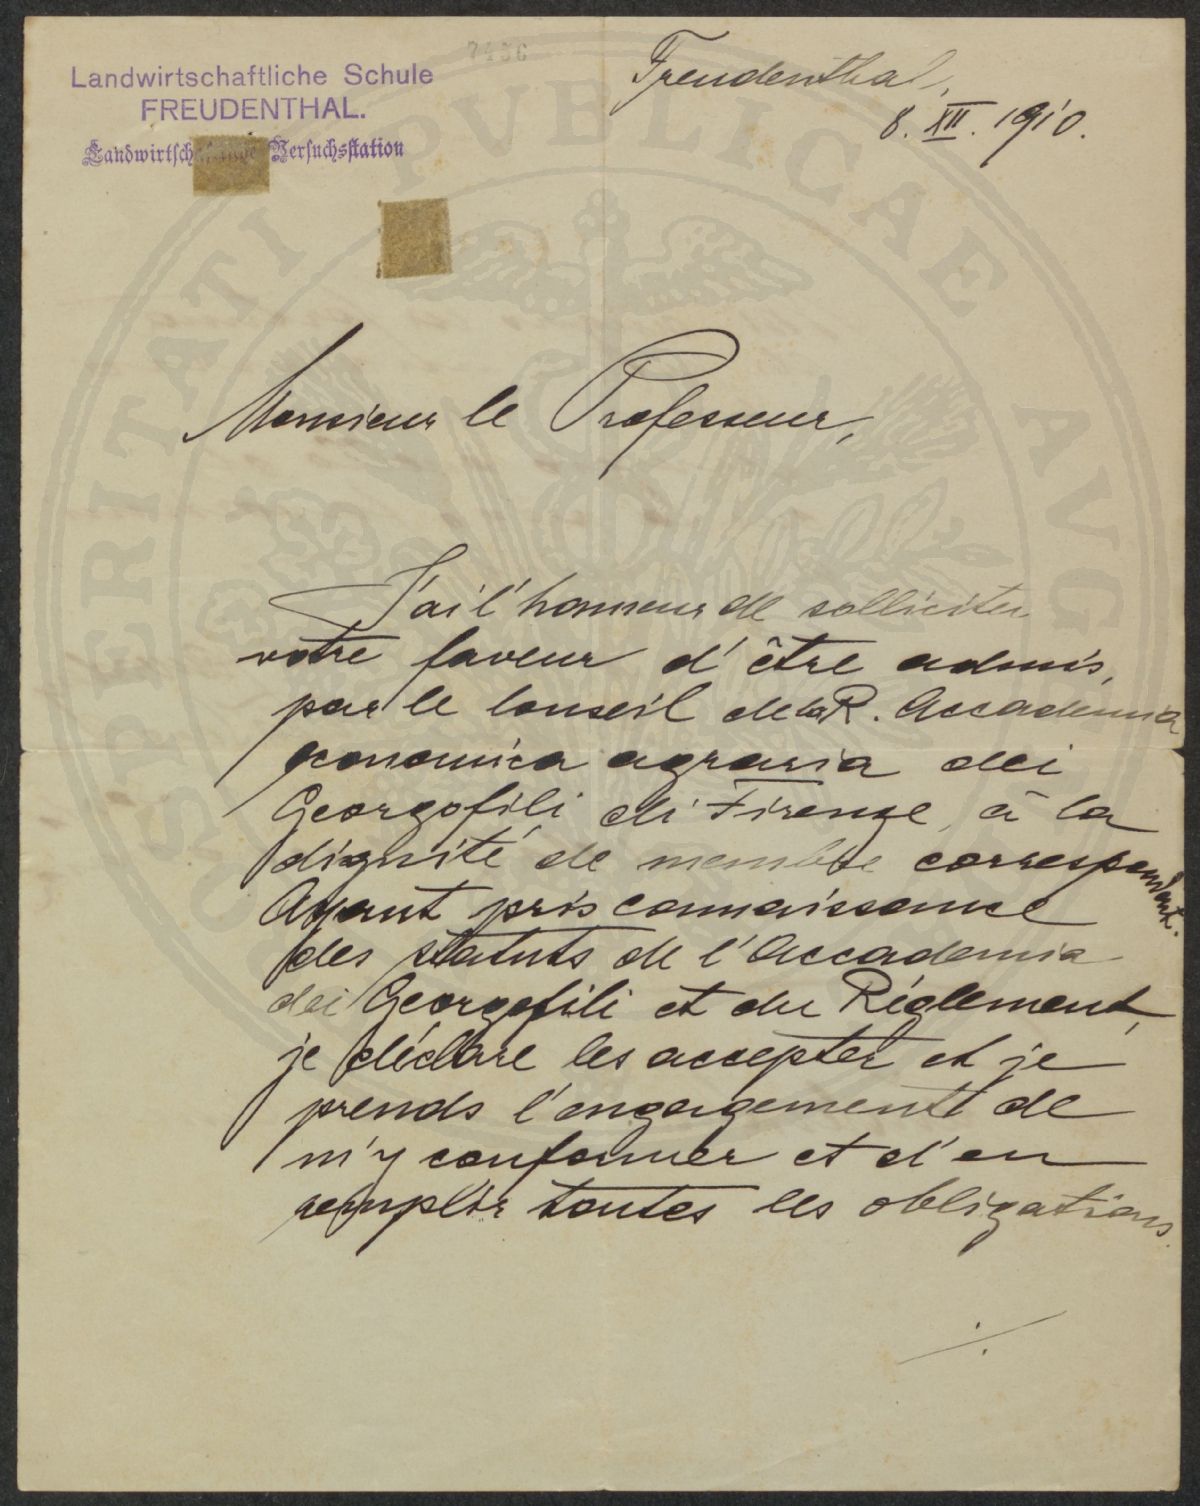 7436
Landwirtschaftliche Schule
FREUDENTHAL.
Landwirtschaftliche Versuchsstation
Freudenthal,
8. XII. 1910.
Monsieur le Professeur,
J'ai l'honneur de solliciter
votre faveur d'être admis,
par le Conseil de la R. Accademia
economica agraria dei
Georgofili di Firenze, à la
dignité de membre correspondant.
Ayant pris connaissance
des statuts de l'Accademia
dei Georgofili et du Réglement,
je déclare les accepter et je
prends l'engagement de
m'y conformer et d'en
remplir toutes les obligations.
./.
PROSPERITATI PVBLICAE AVGENDAE